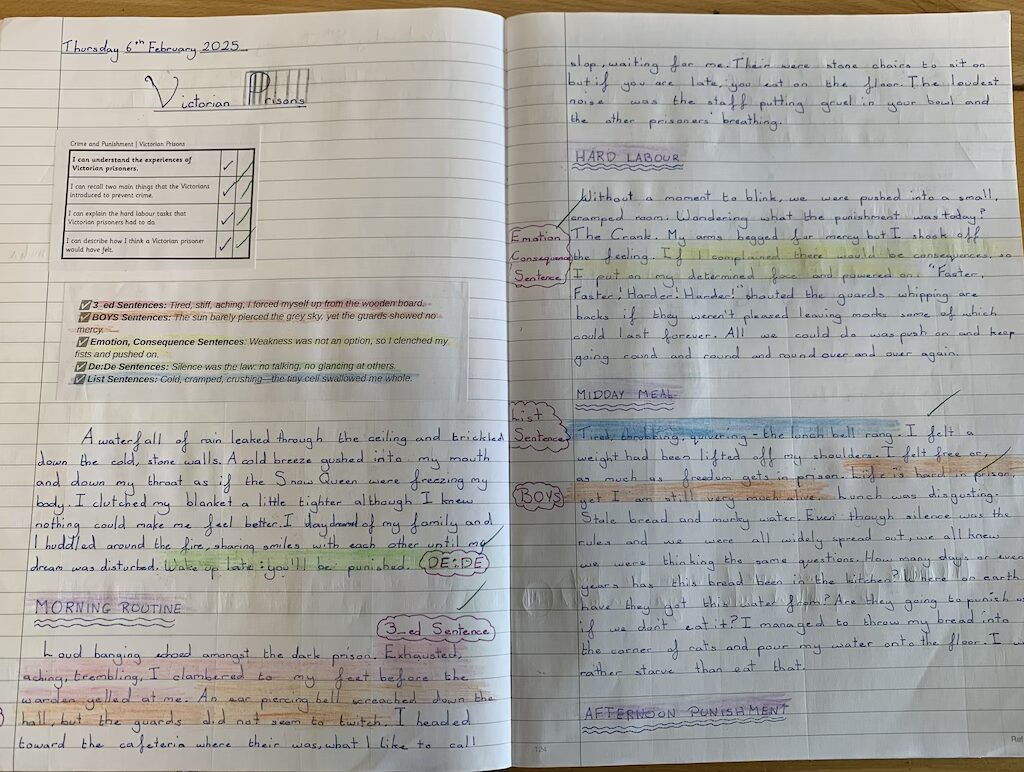 Thursday 6th February 2025
Victorian Prisons
Crime and Punishment | Victorian Prisons
I can understand the experiences of
Victorian prisoners.
I can recall two main things that the Victorians
introduced to prevent crime.
I can explain the hard labour tasks that
Victorian prisoners had to do.
I can describe how I think a Victorian prisoner
would have felt.
3_ed Sentences: Tired, stiff, aching, I forced myself up from the wooden board.
BOYS Sentences: The sun barely pierced the grey sky, yet the guards showed no
mercy.
Emotion, Consequence Sentences: Weakness was not an option, so I clenched my
fists and pushed on.
De:De Sentences: Silence was the law: no talking, no glancing at others.
List Sentences: Cold, cramped, crushing—the tiny cell swallowed me whole.
A waterfall of rain leaked through the ceiling and trickled
down the cold, stone walls. A cold breeze gushed into my mouth
and down my throat as if the Snow Queen were freezing my
body. I clutched my blanket a little tighter although I knew
nothing could make me feel better. I daydreamed of my family and
I huddled around the fire, sharing smiles with each other until my
dream was disturbed. Wake up late: you'll be punished. DE:DE
MORNING ROUTINE
3_ed Sentence
Loud banging echoed amongst the dark prison. Exhausted,
aching, trembling, I clambered to my feet before the
warden yelled at me. An ear piercing bell screached down the
hall, but the guards did not seem to twitch. I headed
toward the cafeteria where their was, what I like to call
slop, waiting for me. Their were stone chairs to sit on
but if you are late, you eat on the floor. The loudest
noise was the staff putting gruel in your bowl and
the other prisoners' breathing.
HARD LABOUR
Without a moment to blink, we were pushed into a small,
cramped room. Wondering what the punishment was today?
The Crank. My arms begged for mercy but I shook off
the feeling. If I complained there would be consequences, so
I put on my determined face and powered on. "Faster,
Faster! Harder! Harder!" shouted the guards whipping are
backs if they weren't pleased leaving marks some of which
could last forever. All we could do was push on and keep
going round and round and round over and over again.
Emotion
Consequence
Sentence
MIDDAY MEAL
List
Sentence
Tired, throbbing, quivering - the lunch bell rang. I felt a
weight had been lifted off my shoulders. I felt free or,
as much as freedom gets in prison. Life is hard in prison,
BOYS
yet I am still very much alive. Lunch was disgusting.
Stale bread and murky water. Even though silence was the
rules and we were all widely spread out, we all knew
we were thinking the same questions. How many days or even
years has this bread been in the kitchen? Where on earth
have they got this water from? Are they going to punish us
if we don't eat it? I managed to throw my bread into
the corner of rats and pour my water onto the floor. I
rather starve than eat that.
AFTERNOON PUNISHMENT
124